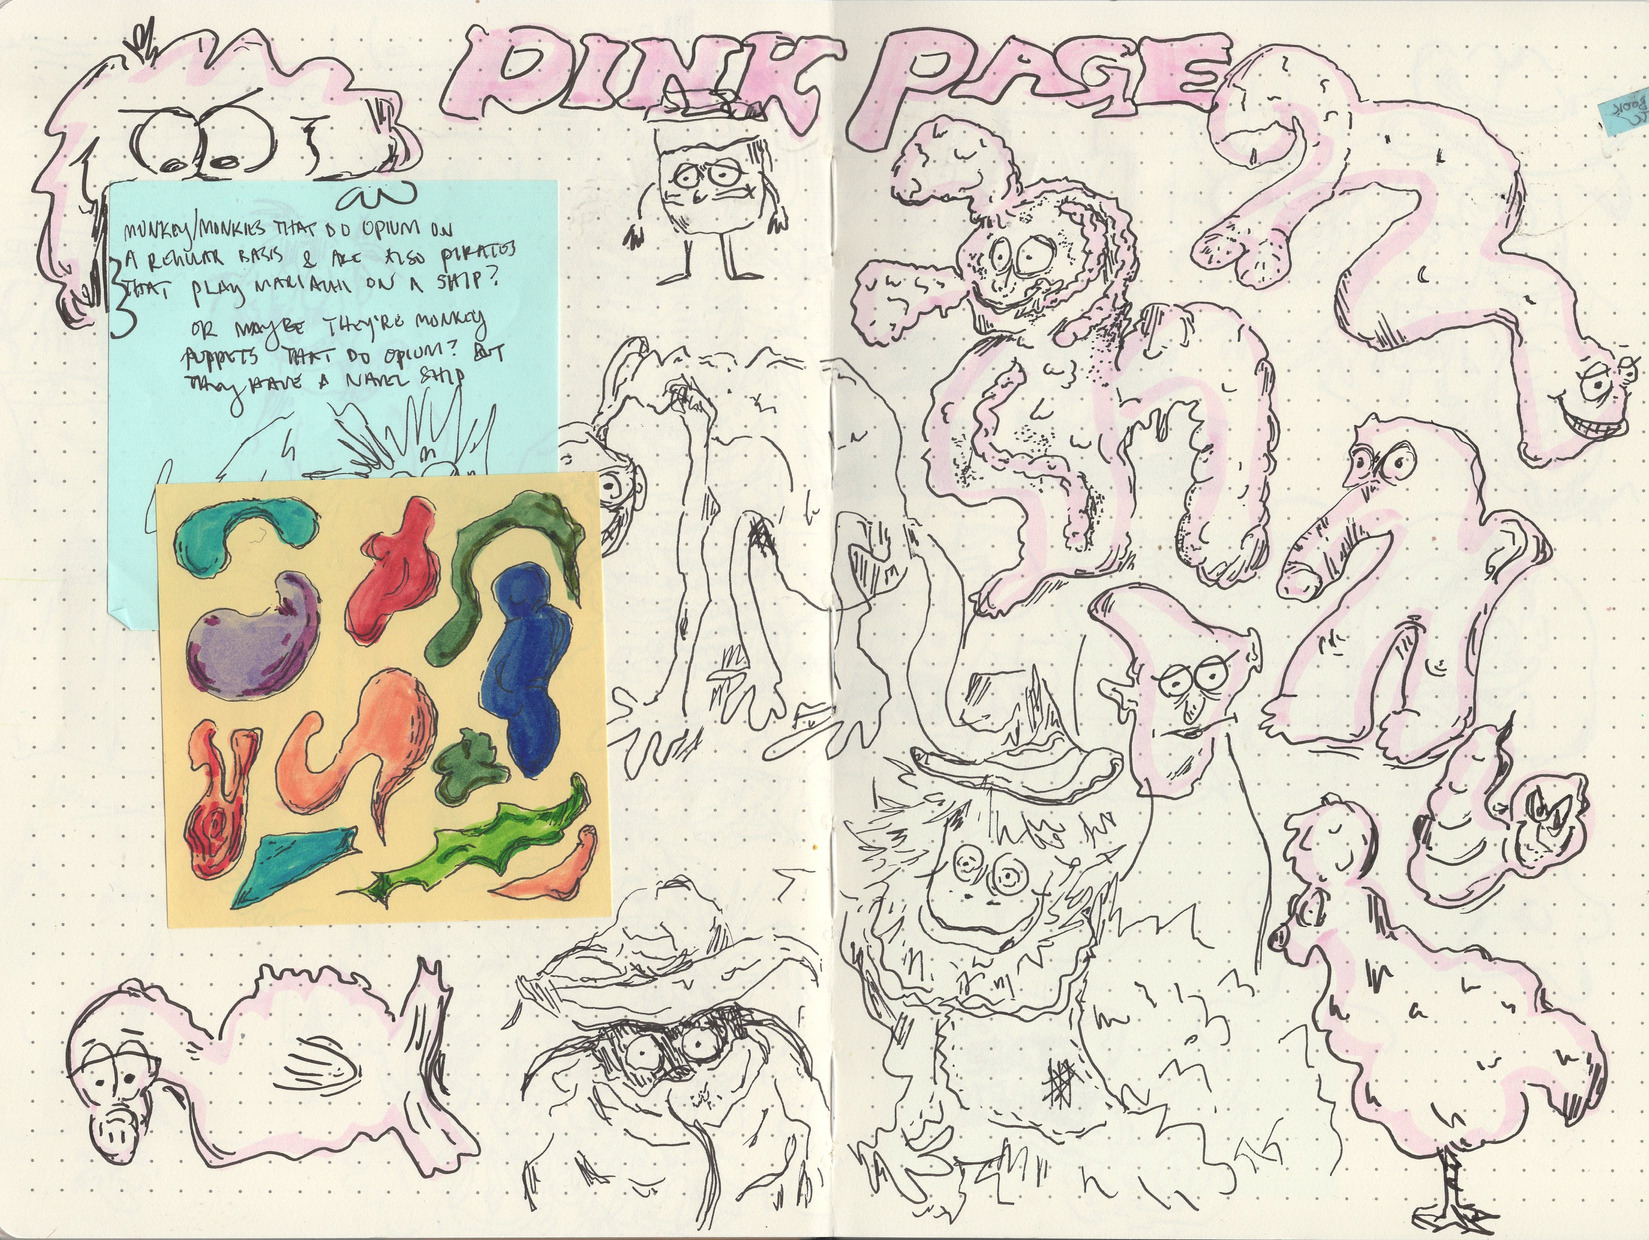 PINK PAGE
MONKEY/MONKIES THAT DO OPIUM ON
A REGULAR BASIS & ARE ALSO PIRATES
THAT PLAY ON A SHIP?
OR MAYBE THEY'RE MONKEY
PUPPETS THAT DO OPIUM? BUT
THEY HAVE A NAVEL SHIP
BOOK